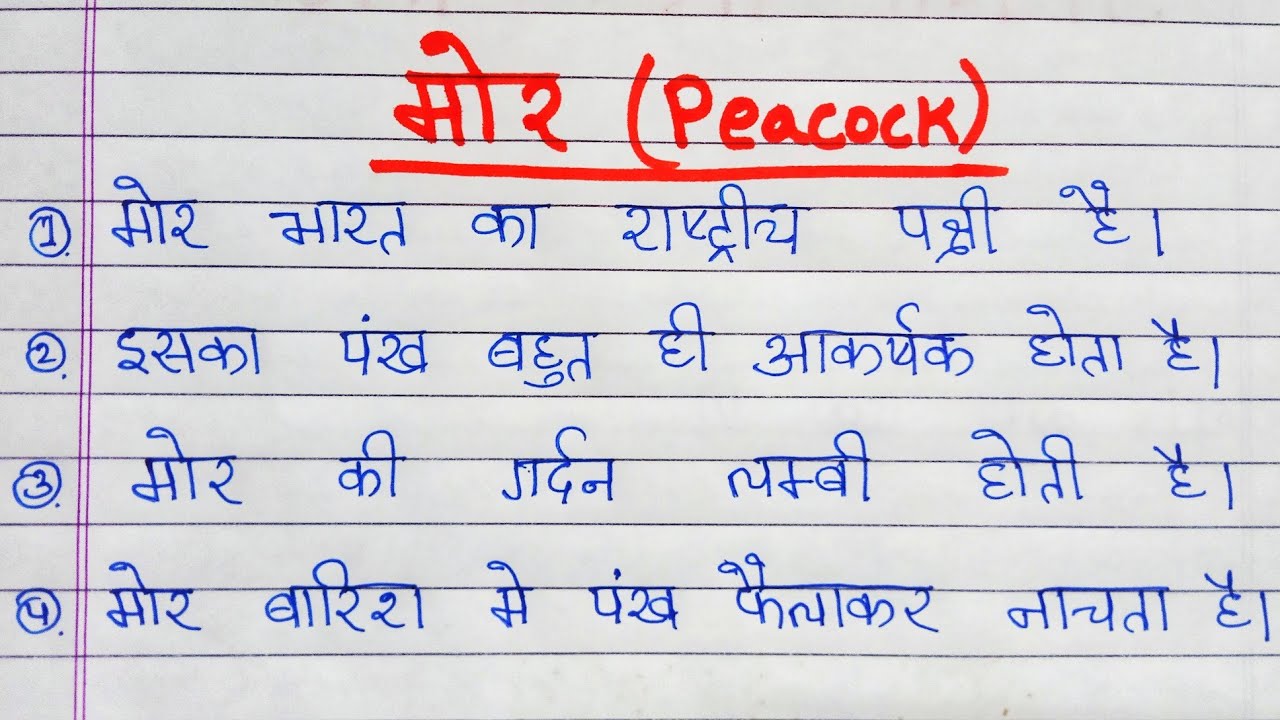 मोर (Peacock)
1. मोर भारत का राष्ट्रीय पक्षी है।
2. इसका पंख बहुत ही आकर्षक होता है।
3. मोर की गर्दन लम्बी होती है।
4. मोर बारिश मे पंख फैलाकर नाचता है।